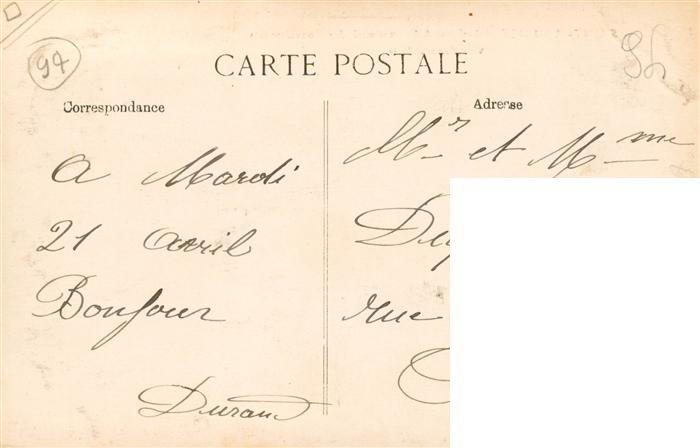 94
CARTE POSTALE
Correspondance
A Mardi
21 avril
Bonjour
Durand
Adresse
Mr et Mme
rue